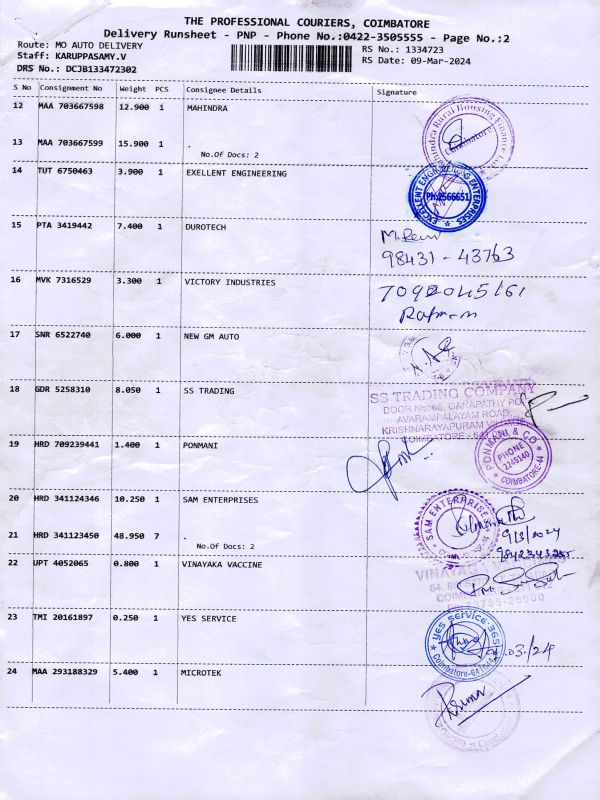 THE PROFESSIONAL COURIERS, COIMBATORE
Delivery Runsheet - PNP - Phone No.:0422-3505555 - Page No.:2
Route: MO AUTO DELIVERY
Staff: KARUPPASAMY.V
DRS No.: DCJB133472302
RS No.: 1334723
RS Date: 09-Mar-2024
S No Consignment No Weight PCS Consignee Details Signature
12 MAA 703667598 12.900 1 MAHINDRA
13 MAA 703667599 15.900 1 .
No.Of Docs: 2
Mahindra Rural Housing Finance Ltd.
Coimbatore
14 TUT 6750463 3.900 1 EXELLENT ENGINEERING
EXCELLENT ENGINEERING ENTERPRISES
Ph:2566651
15 PTA 3419442 7.400 1 DUROTECH
98431 - 43763
16 MVK 7316529 3.300 1 VICTORY INDUSTRIES
7092045161
17 SNR 6522740 6.000 1 NEW GM AUTO
18 GDR 5258310 8.050 1 SS TRADING
SS TRADING COMPANY
DOOR No. 65, GANAPATHY
AVARAMPALAYAM ROAD,
KRISHNARAYAPURAM
COIMBATORE - 641
19 HRD 709239441 1.400 1 PONMANI
PONMANI & CO
PHONE
2245140
COIMBATORE-44
20 HRD 341124346 10.250 1 SAM ENTERPRISES
21 HRD 341123450 48.950 7 .
No.Of Docs: 2
SAM ENTERPRISES
9/3/2024
22 UPT 4052065 0.800 1 VINAYAKA VACCINE
VINAYAKA
23 TMI 20161897 0.250 1 YES SERVICE
yes service 365
Coimbatore-641044
.03/24
24 MAA 293188329 5.400 1 MICROTEK